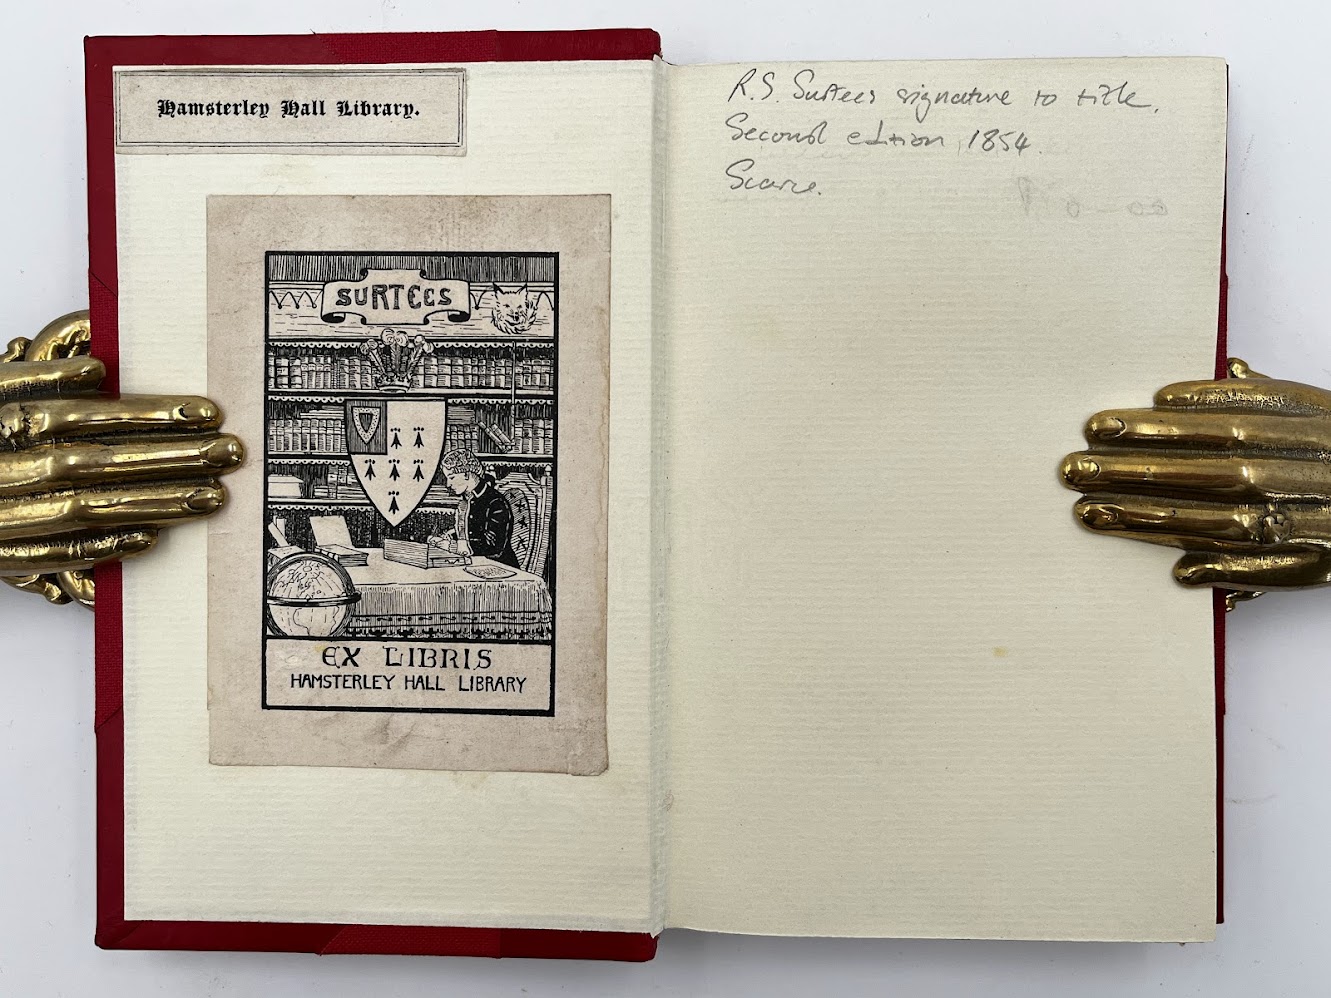 Hamsterley Hall Library.
SURTEES
EX LIBRIS
HAMSTERLEY HALL LIBRARY
R.S. Surtees signature to title.
Second edition, 1854.
Scarce.